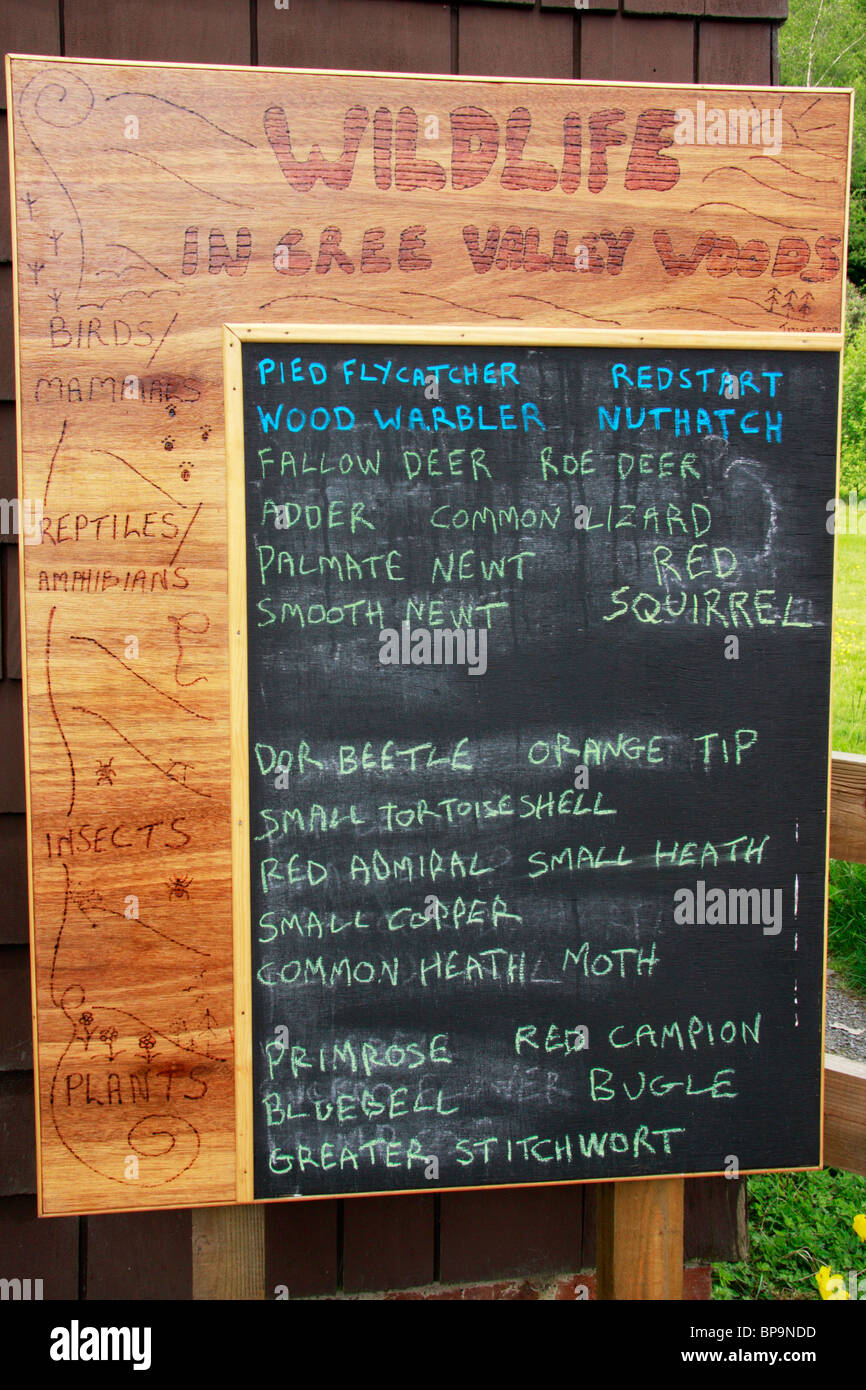 WILDLIFE
IN CREE VALLEY WOODS
BIRDS/
MAMMALS
REPTILES/
AMPHIBIANS
INSECTS
PLANTS
PIED FLYCATCHER REDSTART
WOOD WARBLER NUTHATCH
FALLOW DEER ROE DEER
ADDER COMMON LIZARD
PALMATE NEWT RED
SMOOTH NEWT SQUIRREL
DOR BEETLE ORANGE TIP
SMALL TORTOISESHELL
RED ADMIRAL SMALL HEATH
SMALL COPPER
COMMON HEATH MOTH
PRIMROSE RED CAMPION
BLUEBELL BUGLE
GREATER STITCHWORT
alamy
Image ID: BP9NDD
www.alamy.com